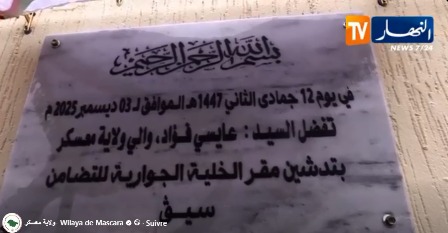 النهار TV
NEWS 7/24
بسم الله الرحمن الرحيم
في يوم 12 جمادى الثاني 1447هـ الموافق لـ 03 ديسمبر 2025 م
تفضل السيد : عايسي فؤاد، والي ولاية معسكر
بتدشين مقر الخلية الجوارية للتضامن
سيق
ولاية معسكر Wilaya de Mascara · Suivre